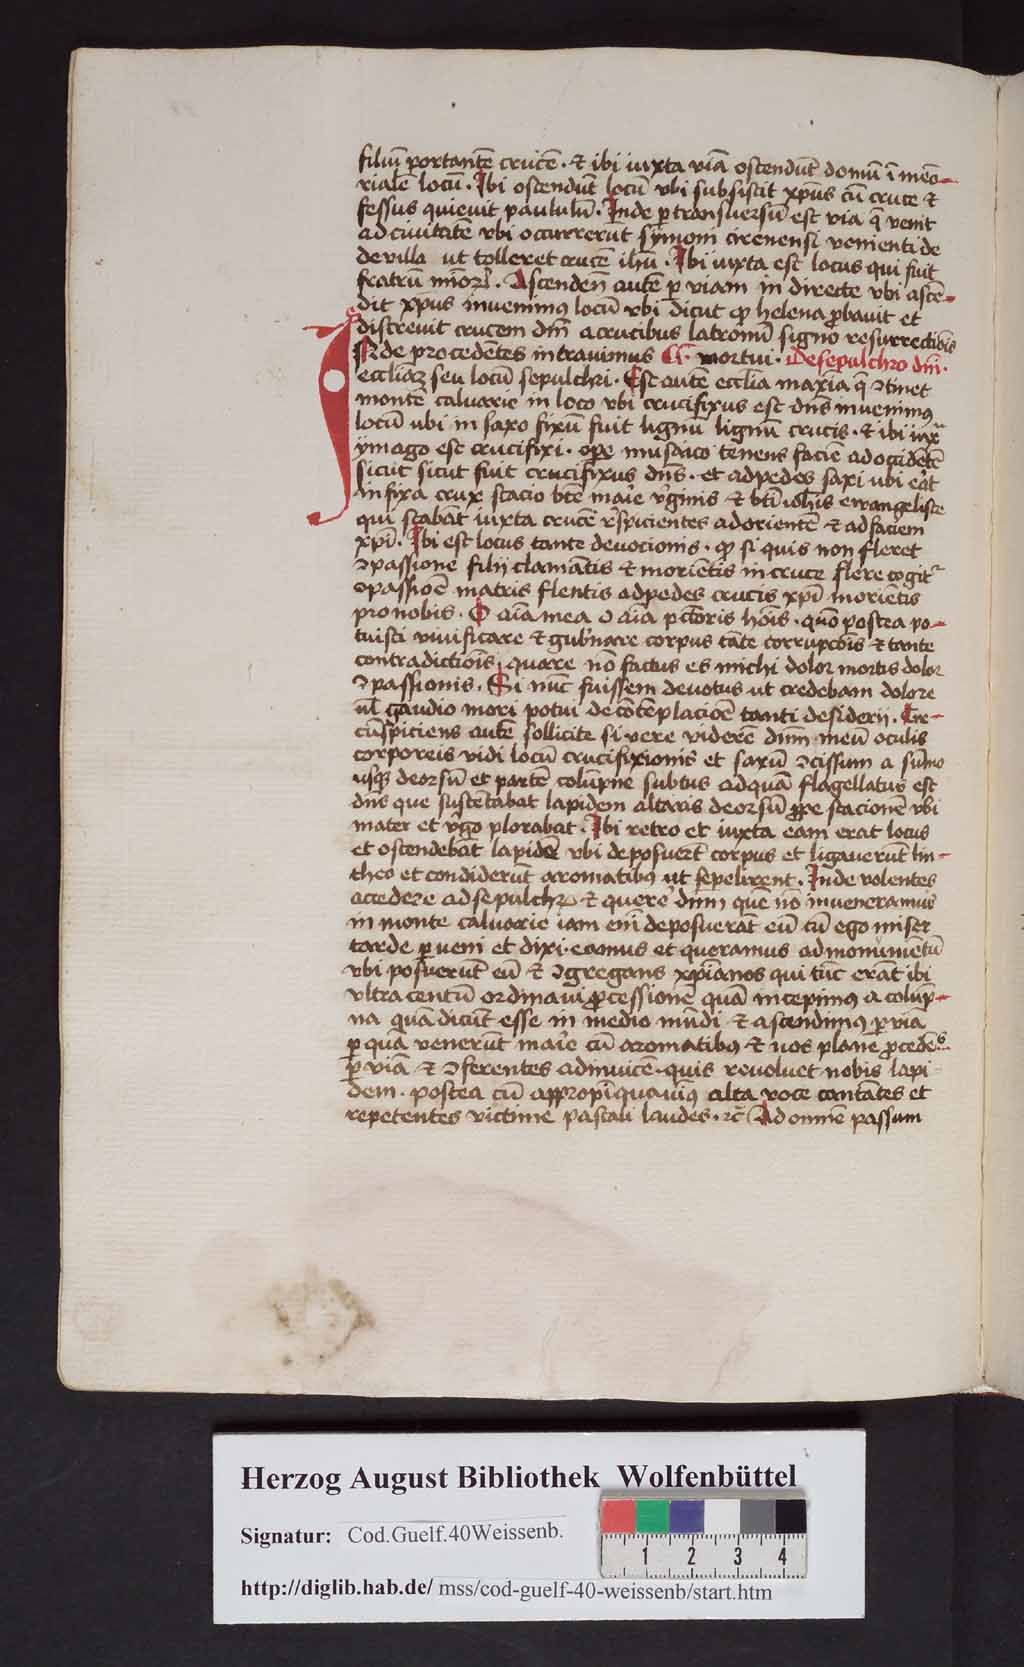 filiū portantē crucē · ⁊ ibi iuxta viā ostendūt domū ī memo-
rialē locū · Ibi ostendūt locū vbi subsistit xp̄us cū cruce ⁊
fessus quieuit paululū · Inde ꝑ transuersū est via q̄ venit
ad ciuitatē vbi occurrerūt symoni cirenensi venienti de
de villa ut tolleret crucē ihū · Ibi iuxta est locus qui fuit
fratrū mīorꝝ · Ascendēn autē ꝑ viam in directe vbi ascē-
dit xp̄us inuenimꝰ locū vbi dicūt ꝙ helena ꝓbauit et
discreuit crucem dnī a crucibus latronū signo resurrectiōis
Inde procedētes intrauimus mortui · De sepulchro dnī ·
ecclīaꝫ seu locū sepulchri · Est autē ecclīa maxīa q̄ ꝯtinet
montē caluarie in loco vbi crucifixus est dn̄s inuenimꝰ
locū ubi in saxo fixū fuit lignū lignū crucis · ⁊ ibi iuxᵃ
ymago est crucifixi · oꝑe musaico tenens faciē ad occidētē
sicut sicut fuit crucifixus dn̄s · et ad pedes saxi ubi erāt
infixa crux stacio btē maīe vꝰginis ⁊ btī ioħis ewangeliste
qui stabāt iuxta crucē rꝰspicientes ad orientē ⁊ ad faciem
xp̄i · Ibi est locus tante deuocionis · ꝙ si quis non fleret
ꝯpassione filij clamātis ⁊ moriētis in cruce flere cogitᷣ
ꝯpassiōe matris flentis ad pedes crucis xp̄i moriētis
pro nobis · O aīa mea o aīa pctōris hōis · quō postea po-
tuisti viuificare ⁊ gubꝰnare corpus tāte corrupcōis ⁊ tante
contradictiōis quare nō factus es michi dolor mortis dolor
ꝯpassionis · Si nūc fuissem deuotus ut credebam dolore
ul̄ gaudio mori potui de cōtēplaciōe tanti desiderij · Cir-
cūspiciens autē sollicite si vere viderē dnm̄ meū oculis
corporeis vidi locū crucifixionis et saxū ꝯscissum a sūmo
usqꝫ deorsū et partē colūpne subtus ad quā flagellatus est
dn̄s que sustētabat lapidem altaris deorsū ꝓpe stacionē vbi
mater et vꝰgo plorabat · Ibi retro et iuxta eam erat locus
et ostendebāt lapidē vbi deposuerūt corpus et ligauerūt lin-
theo et condiderūt aromatibꝰ ut sepelirent · Inde volentes
accedere ad sepulchrū ⁊ querꝰe dnm̄ quē nō inueneramus
in monte caluarie iam enī deposuerāt eū cū ego miser
tarde ꝑueni et dixi · eamus et queramus ad monumētū
vbi posuerūt eū ⁊ ꝯgregans xp̄ianos qui tūc erāt ibi
vltra centū ordinaui ꝓcessionē quā incepimꝰ a colūp-
na quā dicūt esse in medio mūdi ⁊ ascendimꝰ ꝑ via
ꝑ quā venerūt maīe cū aromatibꝰ ⁊ nos plane ꝓcedētes
ꝑ viā ⁊ ꝯferentes adinuicē · quis reuoluet nobis lapi-
dem · postea cū appropīquauimꝰ alta voce cantātes et
repetentes victime pascali laudes · ⁊c̄ Ad omnē passum
Herzog August Bibliothek Wolfenbüttel
Signatur: Cod.Guelf.40Weissenb.
1 2 3 4
http://diglib.hab.de/ mss/cod-guelf-40-weissenb/start.htm